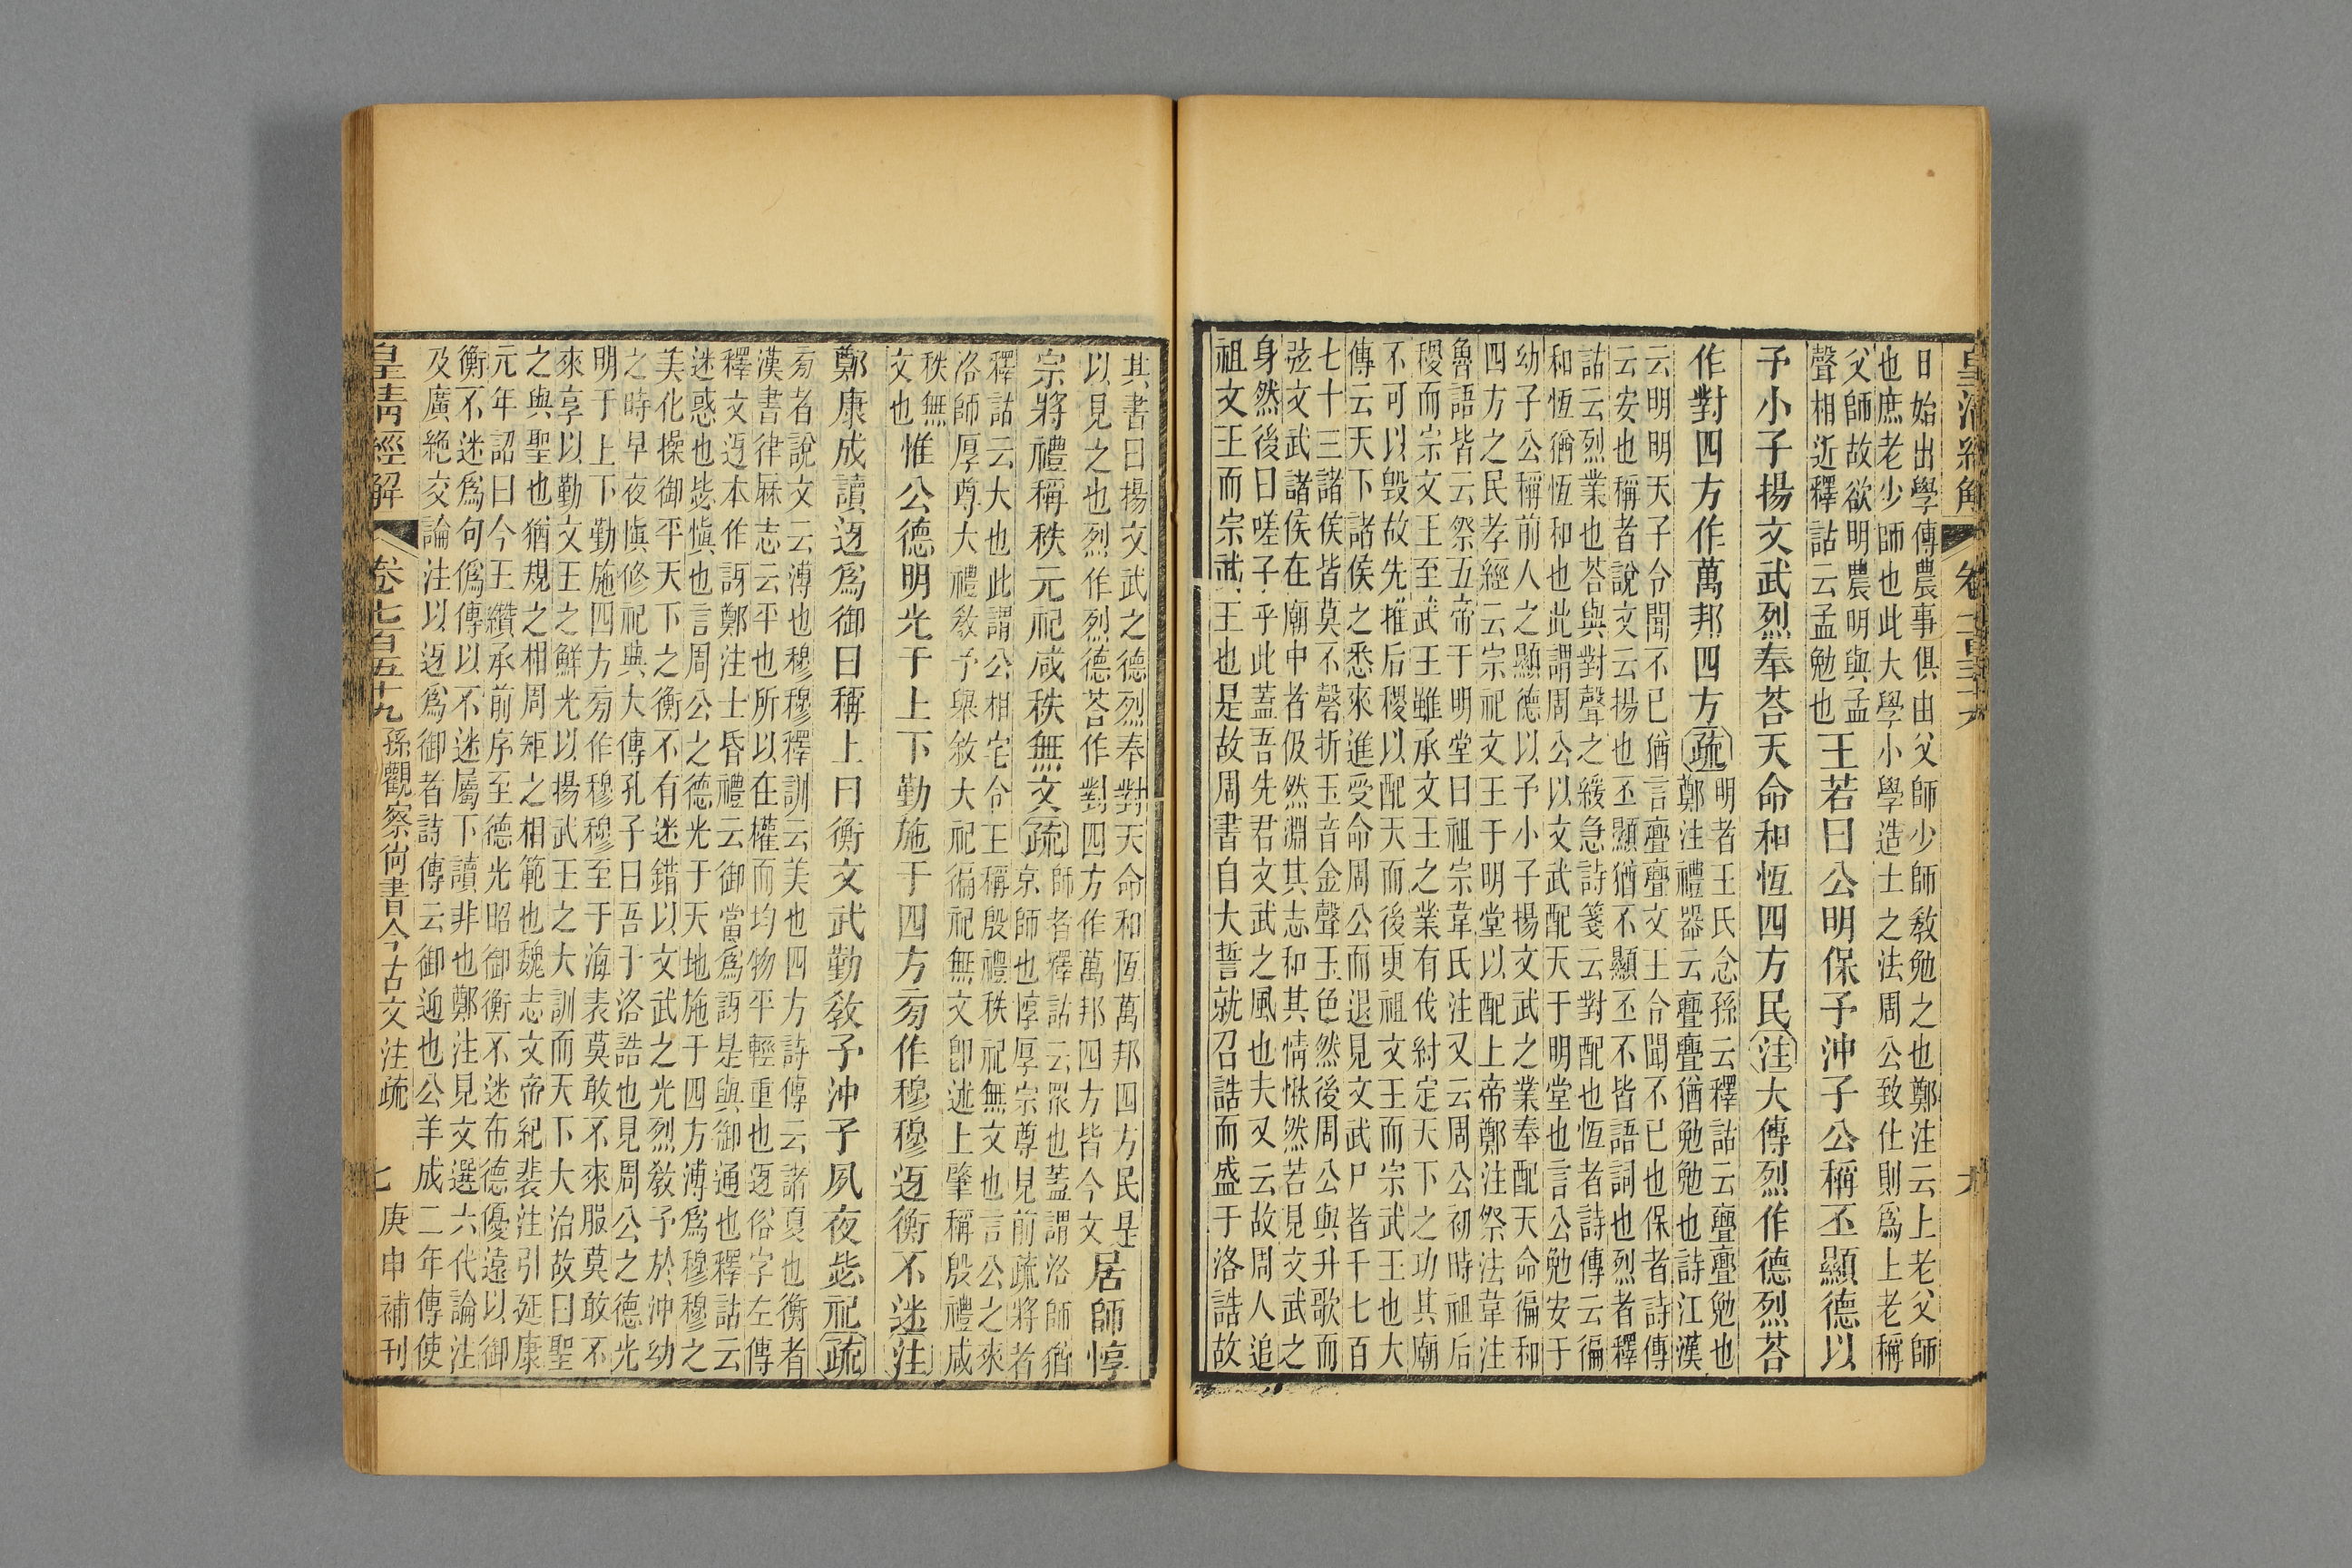 日始出學傳農事俱由父師少師敎勉之也鄭注云上老父師
也庶老少師也此大學小學造士之法周公致仕則爲上老稱
父師故欲明農明與孟
聲相近釋詁云孟勉也
王若曰公明保予沖子公稱丕顯德以
予小子揚文武烈奉荅天命和恆四方民注大傳烈作德烈荅
作對四方作萬邦四方疏
明者王氏念孫云釋詁云亹亹勉也
鄭注禮器云亹亹猶勉勉也詩江漢
云明明天子令聞不已猶言亹亹文王令聞不已也保者詩傳
云安也稱者說文云揚也丕顯猶不顯丕不皆語詞也烈者釋
詁云烈業也荅與對聲之緩急詩箋云對配也恆者詩傳云徧
和恆猶恆和也此謂周公以文武配天于明堂也言公勉安于
幼子公稱前人之顯德以予小子揚文武之業奉配天命徧和
四方之民孝經云宗祀文王于明堂以配上帝鄭注祭法韋注
魯語皆云祭五帝于明堂曰祖宗韋氏注又云周公初時祖后
稷而宗文王至武王雖承文王之業有伐紂定天下之功其廟
不可以毀故先推后稷以配天而後更祖文王而宗武王也大
傳云天下諸侯之悉來進受命周公而退見文武尸者千七百
七十三諸侯皆莫不磬折玉音金聲玉色然後周公與升歌而
弦文武諸侯在廟中者伋然淵其志和其情愀然若見文武之
身然後曰嗟子乎此蓋吾先君文武之風也夫又云故周人追
祖文王而宗武王也是故周書自大誓就召誥而盛于洛誥故
其書曰揚文武之德烈奉對天命和恆萬邦四方民是
以見之也烈作烈德荅作對四方作萬邦四方皆今文
居師惇
宗將禮稱秩元祀咸秩無文疏
師者釋詁云眾也蓋謂洛師猶
京師也惇厚宗尊見前疏將者
釋詁云大也此謂公相宅令王稱殷禮秩祀無文也言公之來
洛師厚尊大禮敎予舉敘大祀徧祀無文卽述上肇稱殷禮咸
秩無
文也
惟公德明光于上下勤施于四方旁作穆穆迓衡不迷注
鄭康成讀迓爲御曰稱上曰衡文武勤敎予沖子夙夜毖祀疏
旁者說文云溥也穆穆釋訓云美也四方詩傳云諸夏也衡者
漢書律厤志云平也所以在權而均物平輕重也迓俗字左傳
釋文迓本作訝鄭注士昏禮云御當爲訝是與御通也釋詁云
迷惑也毖愼也言周公之德光于天地施于四方溥爲穆穆之
美化操御平天下之衡不有迷錯以文武之光烈敎予於沖幼
之時早夜愼修祀典大傳孔子曰吾于洛誥也見周公之德光
明于上下勤施四方旁作穆穆至于海表莫敢不來服莫敢不
來享以勤文王之鮮光以揚武王之大訓而天下大治故曰聖
之與聖也猶規之相周矩之相範也魏志文帝紀裴注引延康
元年詔曰今王纘承前序至德光昭御衡不迷布德優遠以御
衡不迷爲句僞傳以不迷屬下讀非也鄭注見文選六代論注
及廣絶交論注以迓爲御者詩傳云御迎也公羊成二年傳使
皇淸經解 卷七百五十九 孫觀察尙書今古文注疏 七 庚申補刊